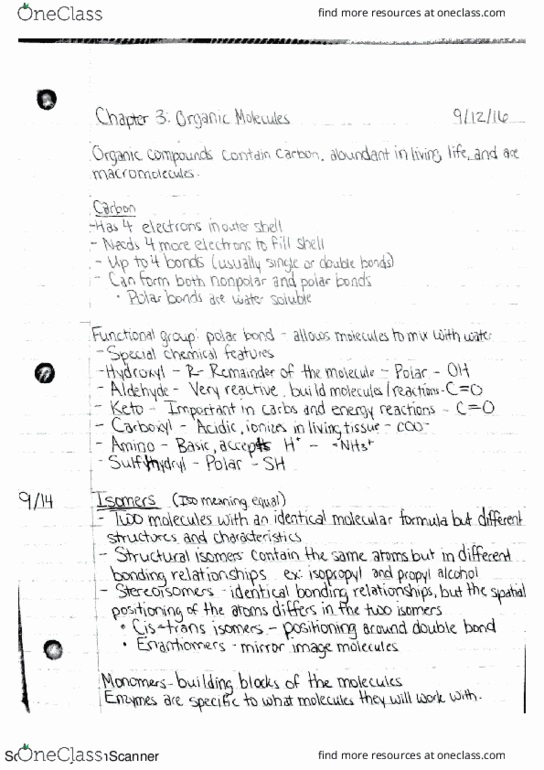 OneClass find more resources at oneclass.com
Chapter 3: Organic Molecules 9/12/16
Organic compounds contain carbon, abundant in living life, and are
macromolecules.
Carbon
-Has 4 electrons in outer shell
- Needs 4 more electrons to fill shell
- Up to 4 bonds (usually single or double bonds)
- Can form both nonpolar and polar bonds
• Polar bonds are water soluble
Functional group: polar bond - allows molecules to mix with water
- Special chemical features
-Hydroxyl - R- Remainder of the molecule - Polar - OH
- Aldehyde - Very reactive, build molecules/reactions - C=O
- Keto - Important in carbs and energy reactions - C=O
- Carboxyl - Acidic, ionizes in living tissue - COO-
- Amino - Basic, accepts H+ - -NH3+
- Sulfhydryl - Polar - SH
9/14 Isomers (Iso meaning equal)
- Two molecules with an identical molecular formula but different
structures and characteristics
- Structural isomers contain the same atoms but in different
bonding relationships ex: isopropyl and propyl alcohol
- Stereoisomers - identical bonding relationships, but the spatial
positioning of the atoms differs in the two isomers
• Cis-trans isomers - positioning around double bond
• Enantiomers - mirror image molecules
Monomers - building blocks of the molecules
Enzymes are specific to what molecules they will work with.
OneClass Scanner find more resources at oneclass.com